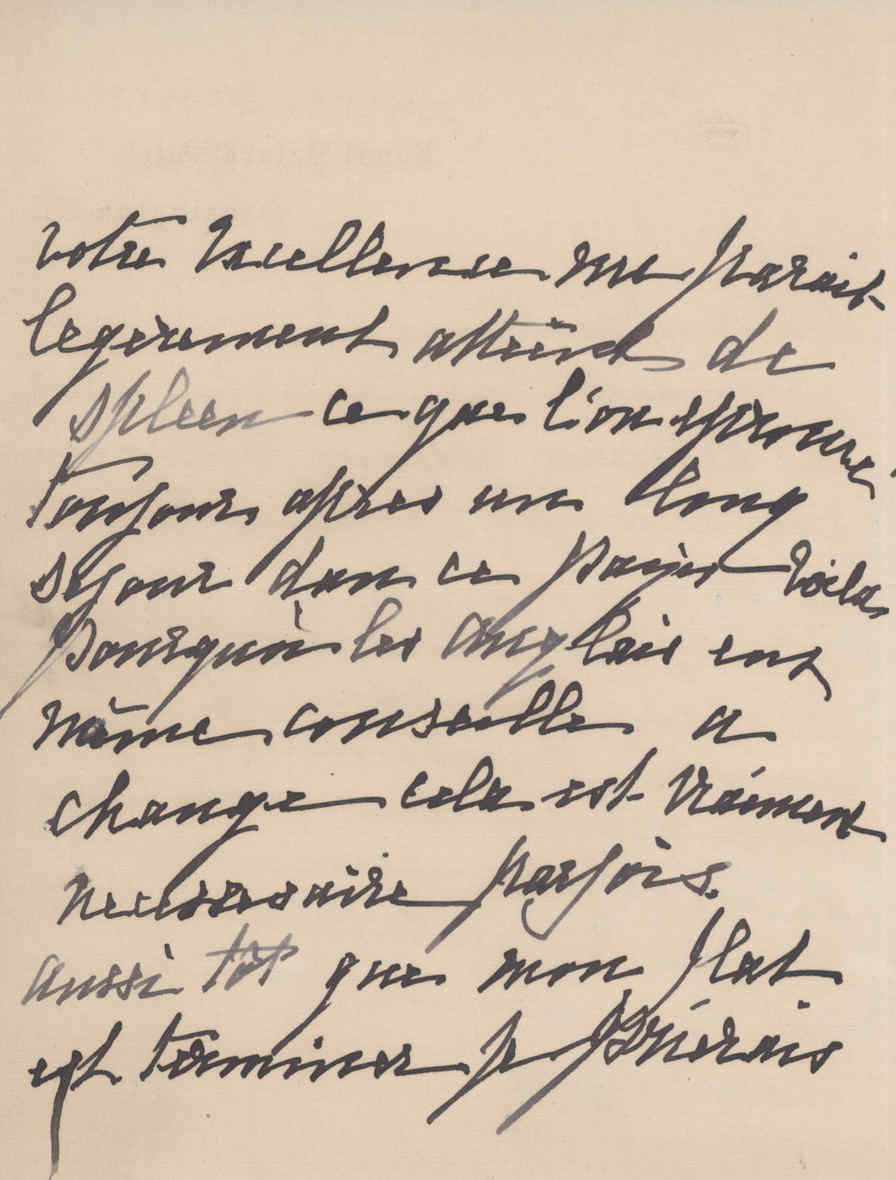 votre Excellence me parait
legèrement atteind de
spleen ce que l'on eprouve
toujour apres un long
sejour dans ce payer voila
pourquoi les anglais ont
même conseille a
change cela est vraiment
necessesaire parfois.
aussi tôt que mon plat
est terminer je prierais